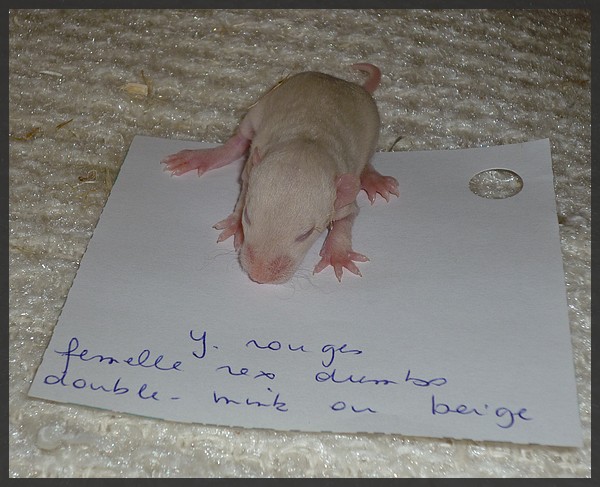 y. rouges
femelle rex dumbo
double-mink ou beige